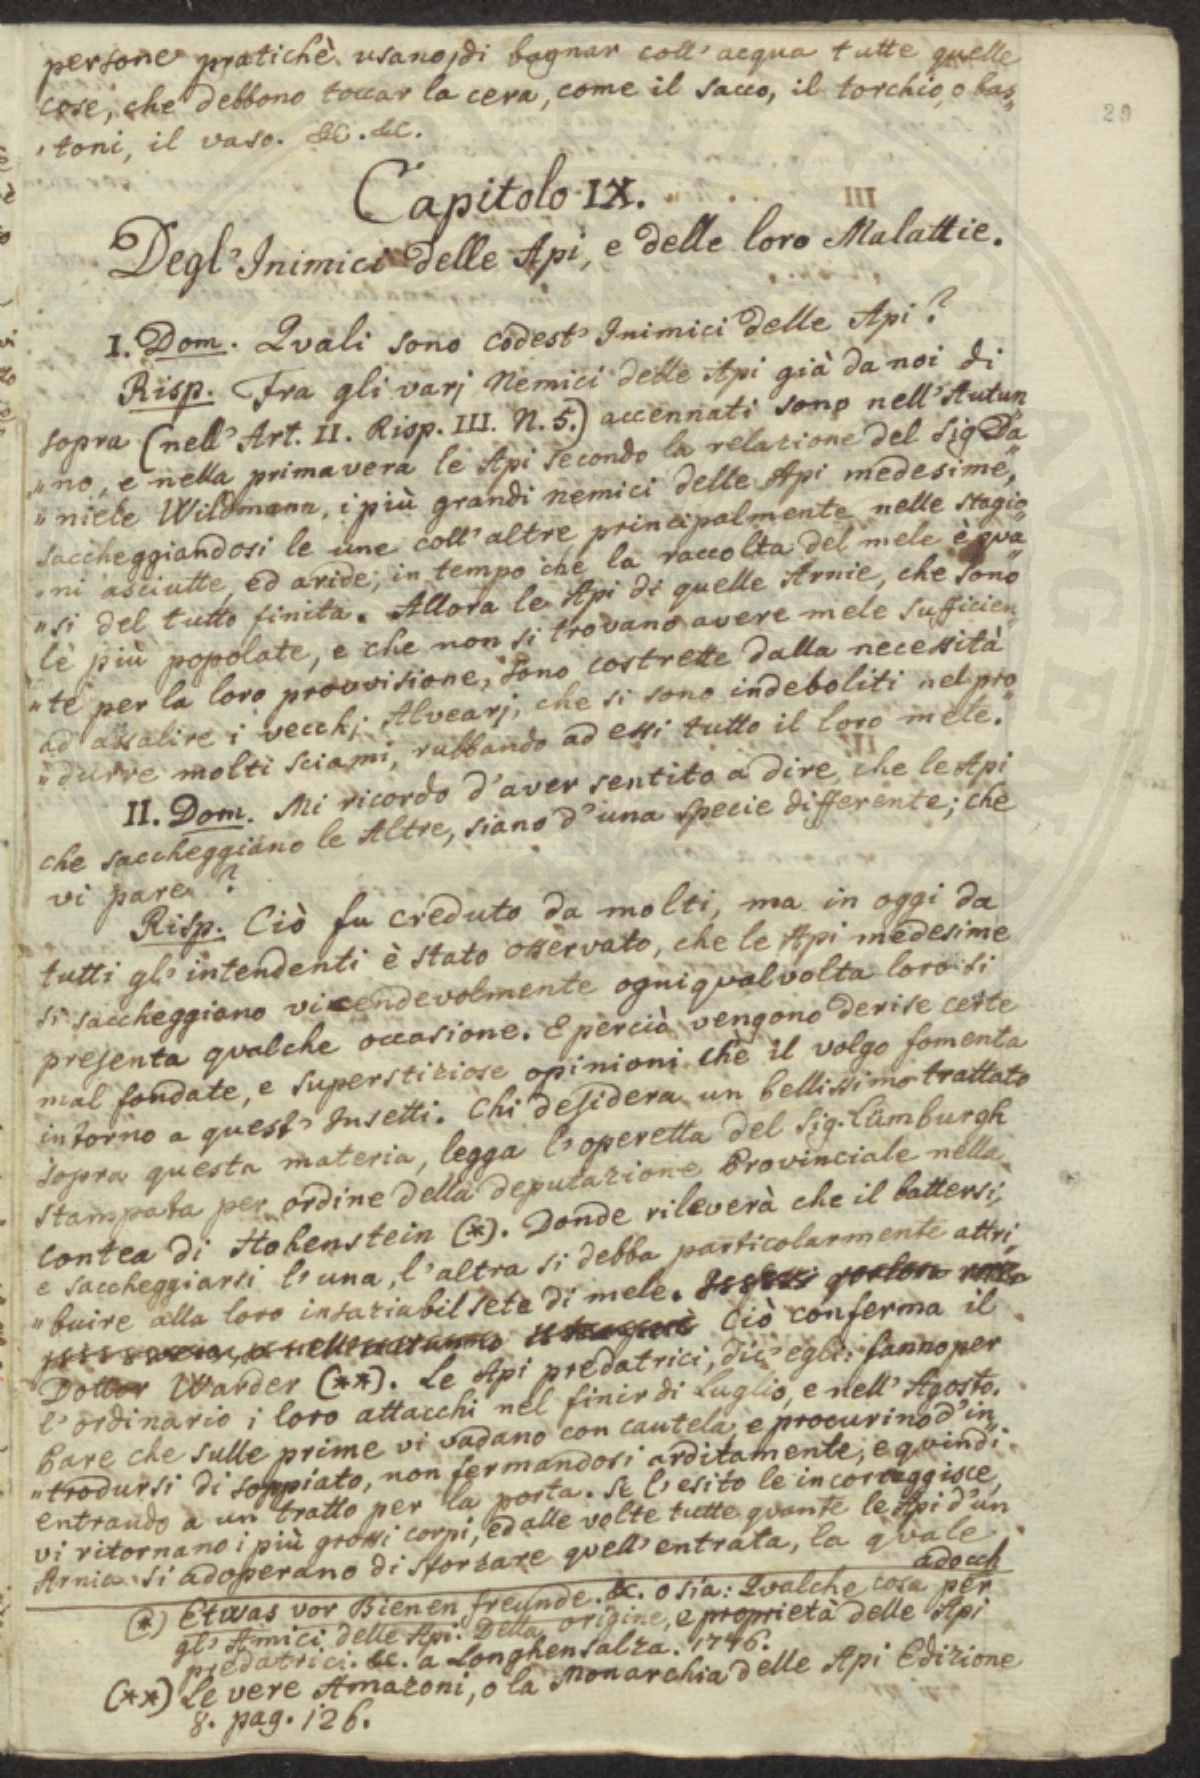 persone pratiche usano, di bagnar coll' acqua tutte quelle
cose, che debbono toccar la cera, come il sacco, il torchio, o bas„
„toni, il vaso. &c. &c.
29
Capitolo IX.
Degl' Inimici delle Api, e delle loro Malattie.
I. Dom. Quali sono codest' Inimici delle Api?
Risp. Fra gli varj Nemici delle Api già da noi di
sopra (nell' Art. II. Risp. III. N. 5.) accennati sono nell' Autun
„no, e nella primavera le Api secondo la relazione del Sig Da„
„niele Wildmann, i più grandi nemici delle Api medesime,
saccheggiandosi le une coll' altre principalmente nelle stagio„
„ni asciutte, ed aride, in tempo che la raccolta del mele è qua„
„si del tutto finita. Allora le Api di quelle Arnie, che sono
le più popolate, e che non si trovano avere mele sufficien„
„te per la loro provvisione, sono costrette dalla necessità
ad assalire i vecchj Alvearj, che si sono indeboliti nel pro„
„durre molti sciami, rubbando ad essi tutto il loro mele.
II. Dom. Mi ricordo d' aver sentito a dire, che le Api
che saccheggiano le Altre, siano d' una specie differente; che
vi pare?
Risp. Ciò fu creduto da molti, ma in oggi da
tutti gl' intendenti è stato osservato, che le Api medesime
si saccheggiano vicendevolmente ogniqualvolta loro si
presenta qualche occasione. E perciò vengono derise certe
mal fondate, e superstiziose opinioni che il volgo fomenta
intorno a quest' Insetti. Chi desidera un bellissimo trattato
sopra questa materia, legga l' operetta del Sig. Lümburgh
stampata per ordine della deputazione Provinciale nella
contea di Hohenstein (*). Donde rileverà che il battersi,
e saccheggiarsi l' una, l' altra si debba particolarmente attri„
„buire alla loro insaziabil sete di mele.
Ciò conferma il
Dottor Warder (**). Le Api predatrici, dic' egli: fanno per
l' ordinario i loro attacchi nel finir di Luglio, e nell' Agosto.
Pare che sulle prime vi vadano con cautela, e procurino d' in„
„trodursi di soppiato, non fermandosi arditamente, e quindi
entrando a un tratto per la porta. Se l' esito le incorraggisce,
vi ritornano i più grossi corpi, ed alle volte tutte quante le Api d' un
Arnia si adoperano di sforzare quell' entrata, la quale
adocch
(*) Etwas vor Bienen freunde. &c. o sia: Qualche cosa per
gl' Amici delle Api. Della origine, e proprietà delle Api
predatrici. &c. a Longhensalza. 1776.
(**) Le vere Amazoni, o la Monarchia delle Api Edizione
8. pag. 126.